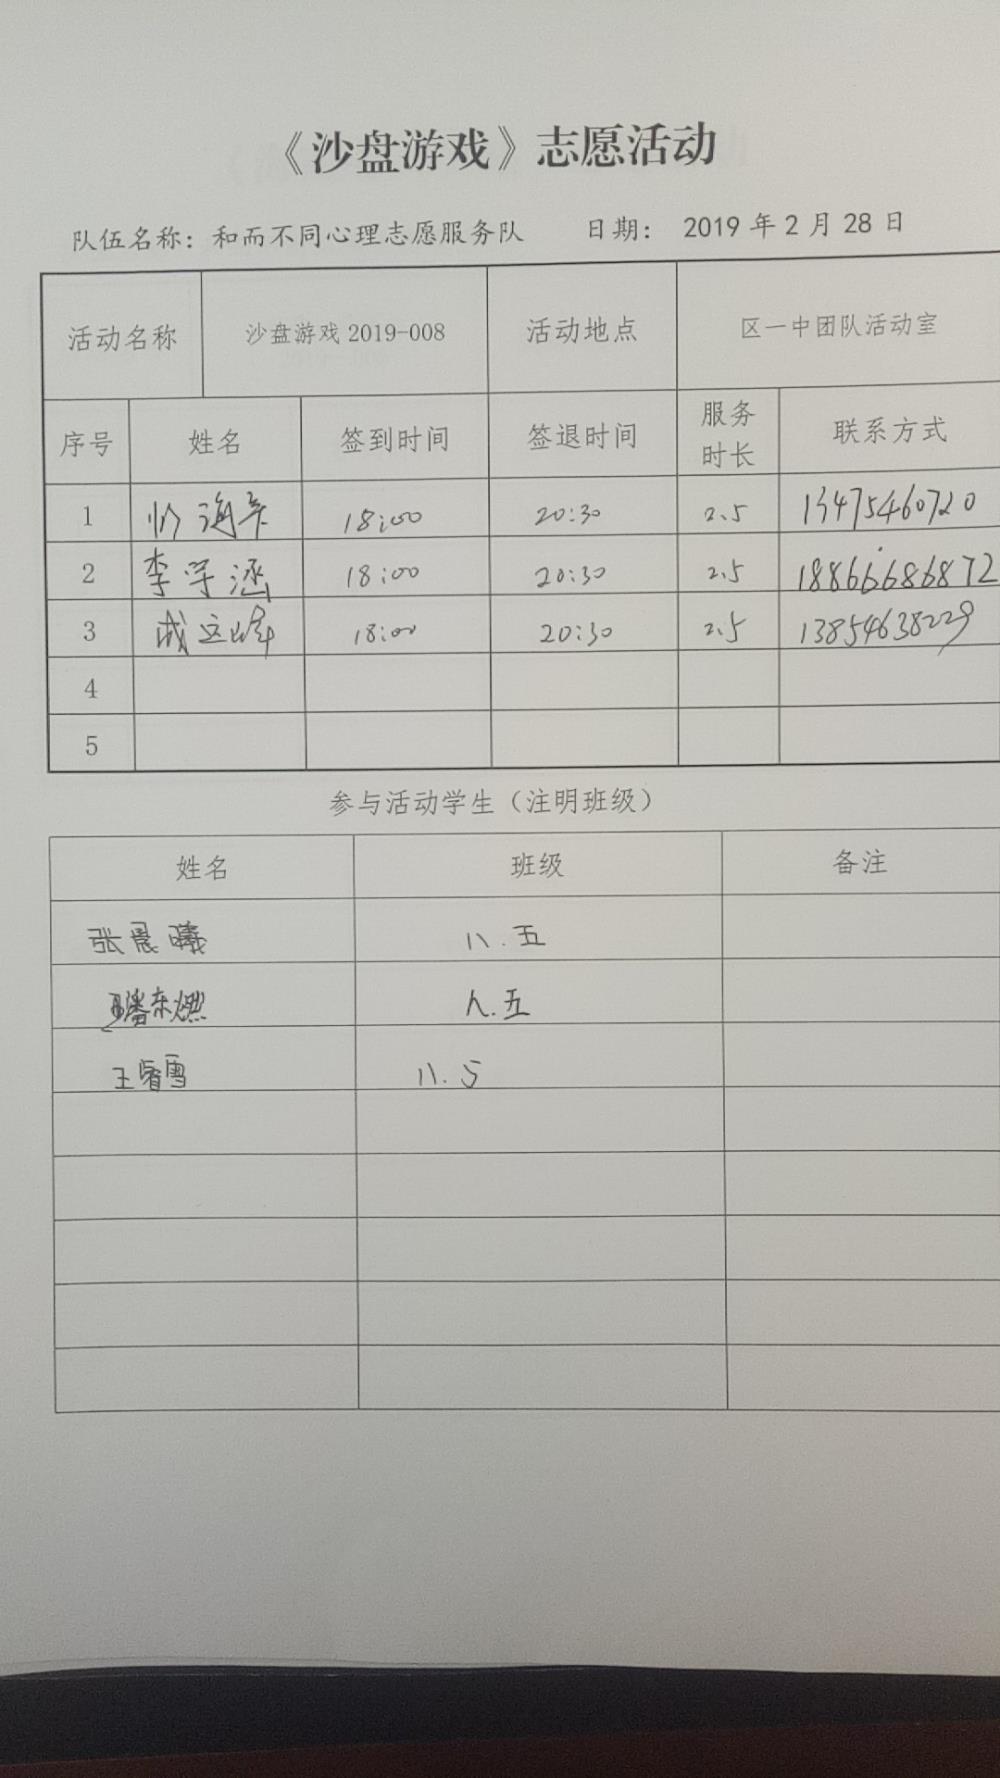 《沙盘游戏》志愿活动
队伍名称：和而不同心理志愿服务队 日期： 2019 年 2 月 28 日
活动名称 沙盘游戏 2019-008 活动地点 区一中团队活动室
序号 姓名 签到时间 签退时间 服务时长 联系方式
1 18:00 20:30 2.5 13475460720
2 李学涵 18:00 20:30 2.5 18866686872
3 18:00 20:30 2.5 13854638229
4
5
参与活动学生（注明班级）
姓名 班级 备注
张晨曦 八.五
八.五
王睿雪 八.5